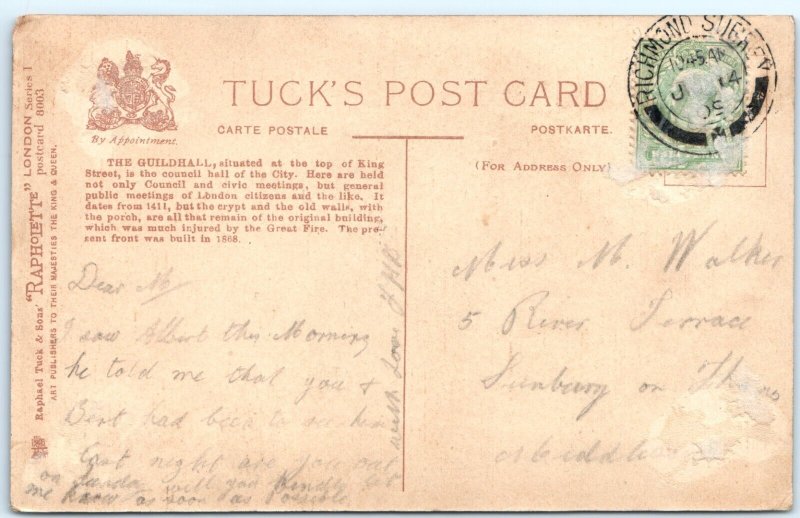 Raphael Tuck & Sons' "RAPHOLETTE" LONDON Series I
postcard 8003
ART PUBLISHERS TO THEIR MAJESTIES THE KING & QUEEN.
By Appointment.
TUCK'S POST CARD
CARTE POSTALE
POSTKARTE.
(FOR ADDRESS ONLY)
RICHMOND SURREY
10 45 AM
14
05
THE GUILDHALL, situated at the top of King
Street, is the council hall of the City. Here are held
not only Council and civic meetings, but general
public meetings of London citizens and the like. It
dates from 1411, but the crypt and the old walls, with
the porch, are all that remain of the original building,
which was much injured by the Great Fire. The pre-
sent front was built in 1868.
Dear M
I saw Albert this Morning
he told me that you &
Bert had been to see him
last night are you out
on Sunday will you kindly let
me know as soon as Possible
with love
Miss M. Walker
5 River Terrace
Sunbury on Thames
Middlesex